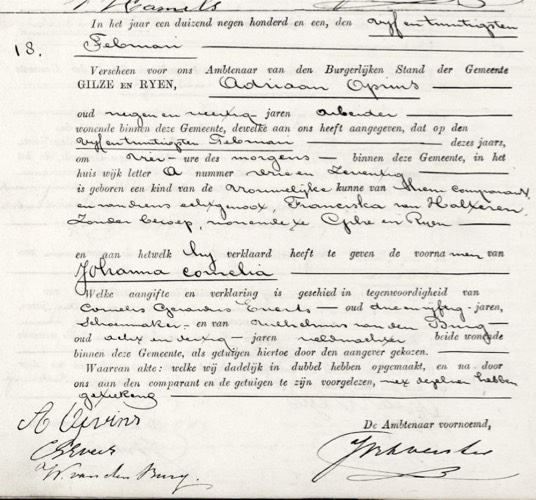 In het jaar een duizend negen honderd en een, den vyfentwintigsten
18.
Februari
Verscheen voor ons Ambtenaar van den Burgerlijken Stand der Gemeente
GILZE EN RYEN, Adriaan
oud negen en veertig jaren arbeider
wonende binnen deze Gemeente, dewelke aan ons heeft aangegeven, dat op den
vyfentwintigsten Februari dezes jaars,
om vier ure des morgens binnen deze Gemeente, in het
huis wijk letter A nummer drie en zeventig
is geboren een kind van de vrouwelijke kunne van hem comparant
en van diens echtgenoot, Franciska van Halteren,
zonder beroep, wonende te Gilze en Ryen
en aan hetwelk hij verklaard heeft te geven de voornamen van
Johanna Cornelia
Welke aangifte en verklaring is geschied in tegenwoordigheid van
Cornelis Gerardus Everts oud jaren,
Schoenmaker en van Wilhelmus van den Burg
oud acht en dertig jaren veldwachter beide wonende
binnen deze Gemeente, als getuigen hiertoe door den aangever gekozen.
Waarvan akte: welke wij dadelijk in dubbel hebben opgemaakt, en na door
ons aan den comparant en de getuigen te zijn voorgelezen, met dezelven hebben
geteekend
De Ambtenaar voornoemd,
W. van den Burg.